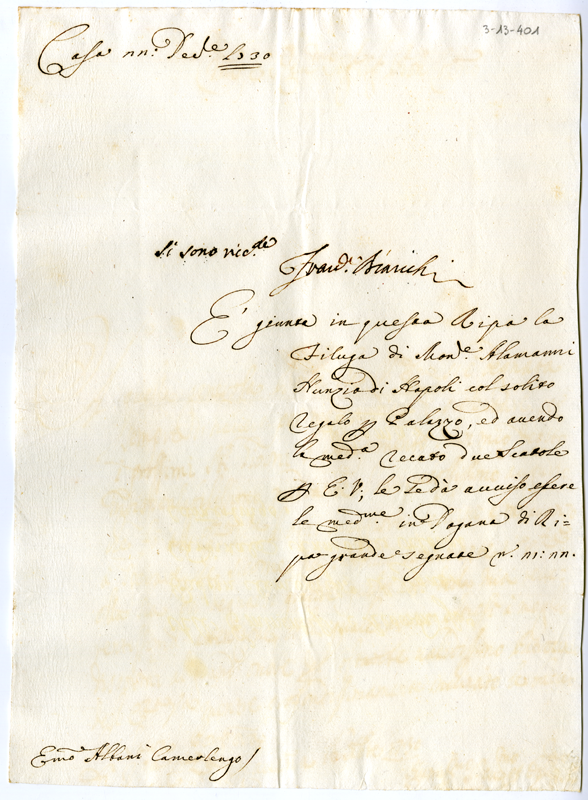 3-13-401
Casa nn: Dec.e 1730
Si sono ric.de
Fran.c Bianchi
E' giunta in questa Ripa la
Filuga di Mon.e Alamanni
Nunzio di Napoli col solito
regalo p Palazzo, ed avendo
la med.a recato due Scatole
p E. V; le ne dà avviso essere
le med.me in Dogana di Ri=
pa grande segnate n. m: nn.
Emo Albani Camerlengo /